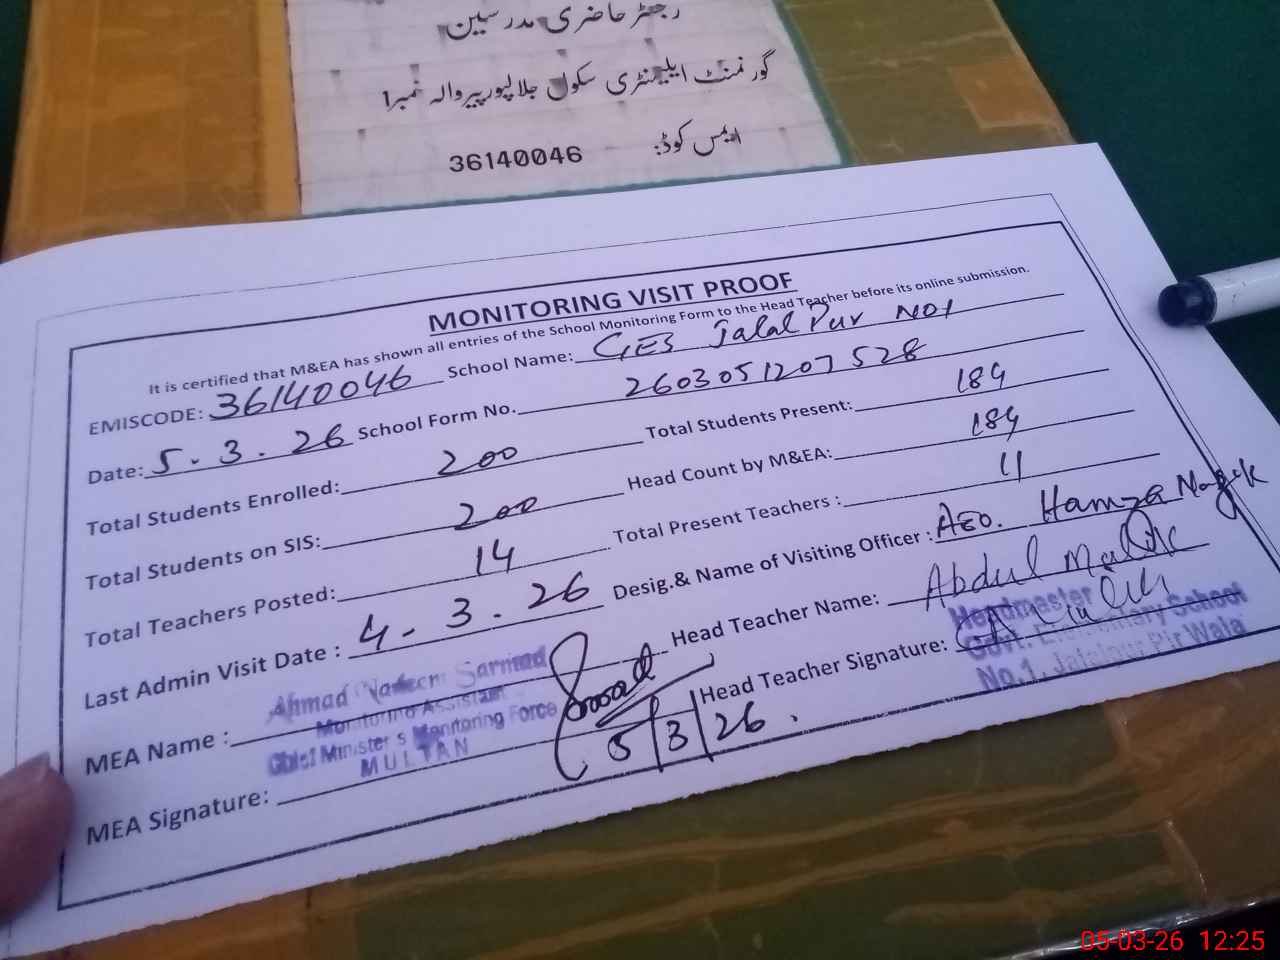 رجسٹر حاضری مدرسین
گورنمنٹ ایلیمنٹری سکول جلالپور پیروالہ نمبر1
ایمس کوڈ: 36140046
MONITORING VISIT PROOF
It is certified that M&EA has shown all entries of the School Monitoring Form to the Head Teacher before its online submission.
EMISCODE: 36140046 School Name: GES Jalal Pur NO1
Date: 5.3.26 School Form No. 2603051207528
Total Students Enrolled: 200 Total Students Present: 184
Total Students on SIS: 200 Head Count by M&EA: 184
Total Teachers Posted: 14 Total Present Teachers : 11
Last Admin Visit Date : 4.3.26 Desig.& Name of Visiting Officer : AEO. Hamza
MEA Name : Head Teacher Name: Abdul Malik
Ahmad Nadeem Sarmad
Monitoring Assistant
Chief Minister's Monitoring Force
MULTAN
MEA Signature: 5/3/26. Head Teacher Signature:
Headmaster
Govt. Elementary School
No.1, Jalalpur Pir Wala
05-03-26 12:25